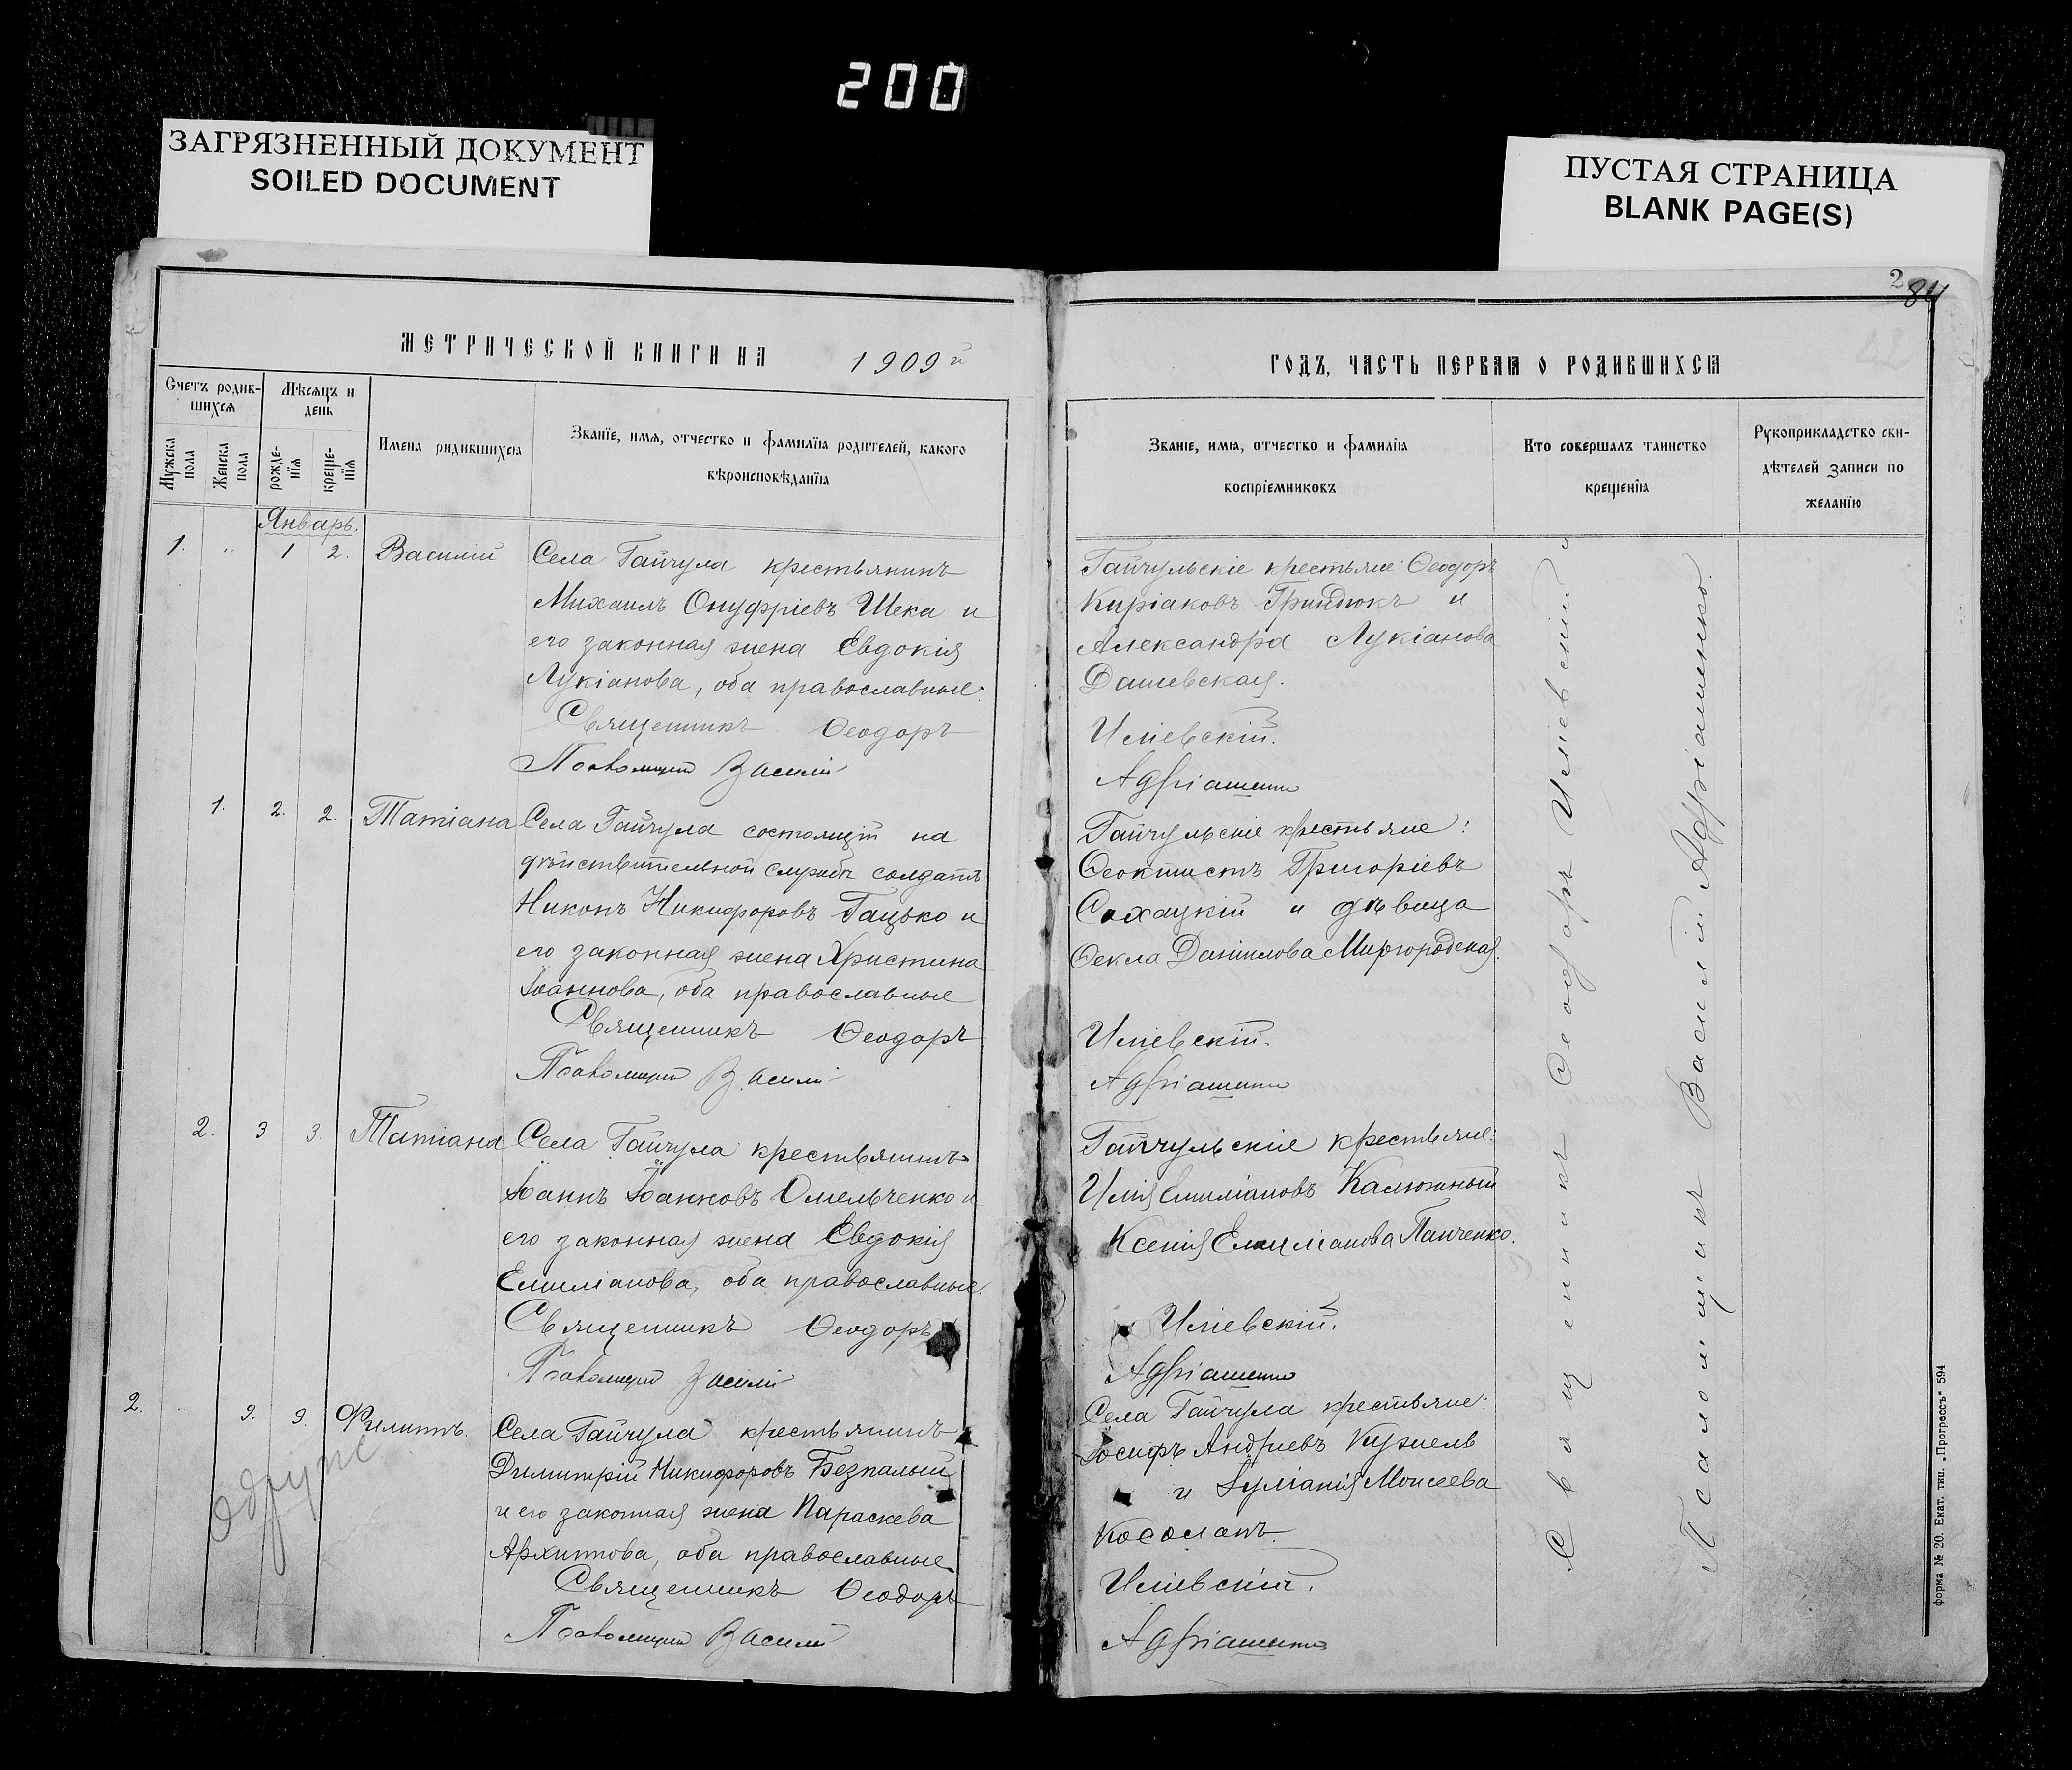 200
ЗАГРЯЗНЕННЫЙ ДОКУМЕНТ
SOILED DOCUMENT
ПУСТАЯ СТРАНИЦА
BLANK PAGE(S)
МЕТРИЧЕСКОЙ КНИГИ НА 1909й
Счетъ родив-
шихся
Мѣсяцъ и
день
Мужска
пола
Женска
пола
рожде-
нїя
креще-
нїя
Имена родившихся
Званїе, имя, отчество и фамилїя родителей, какого
вѣроисповѣданїя
Январь.
1. „ 1 2. Василій
Села Гайчула крестьянинъ
Михаилъ Онуфріевъ Шека и
его законная жена Евдокія
Лукіанова, оба православные.
Священникъ Ѳеодоръ
Псаломщикъ Василій
1. 2. 2. Татіана
Села Гайчула состоящій на
дѣйствительной службѣ солдатъ
Никонъ Никифоровъ Гацько и
его законная жена Христина
Іоаннова, оба православные
Священникъ Ѳеодоръ
Псаломщикъ Василій
2. 3 3. Татіана
Села Гайчула крестьянинъ
Іоаннъ Іоанновъ Омельченко и
его законная жена Евдокія
Емиліанова, оба православные.
Священникъ Ѳеодоръ
Псаломщикъ Василій
2. „ 9. 9. Филиппъ.
Села Гайчула крестьянинъ
Димитрій Никифоровъ Безпалый
и его законная жена Параскева
Архиппова, оба православные
Священникъ Ѳеодоръ
Псаломщикъ Василій
2 84
ГОДЪ, ЧАСТЬ ПЕРВАЯ О РОДИВШИХСЯ
Званіе, имя, отчество и фамилія
воспріемниковъ
Кто совершалъ таинство
крещенія
Рукоприкладство сви-
дѣтелей записи по
желанїю
Гайчульскіе крестьяне Ѳеодоръ
Киріаковъ Гриндюкъ и
Александра Лукіанова
Дашевская.
Иліевскій.
Адріашенко
Гайчульскіе крестьяне:
Ѳеоктистъ Григоріевъ
Сахацкій и дѣвица
Ѳекла Даніилова Миргородская.
Иліевскій.
Адріашенко
Гайчульскіе крестьяне:
Илія Емиліановъ Калюжный
Ксенія Емиліанова Панченко.
Иліевскій.
Адріашенко
Села Гайчула крестьяне:
Іосифъ Андреевъ Кужель
и Іуліанія Моисеева
Косолапъ.
Иліевскій.
Адріашенко
Священникъ Ѳеодоръ Иліевскій и
Псаломщикъ Василій Адріашенко.
форма № 20. Екат. тип. „Прогрессъ" 594